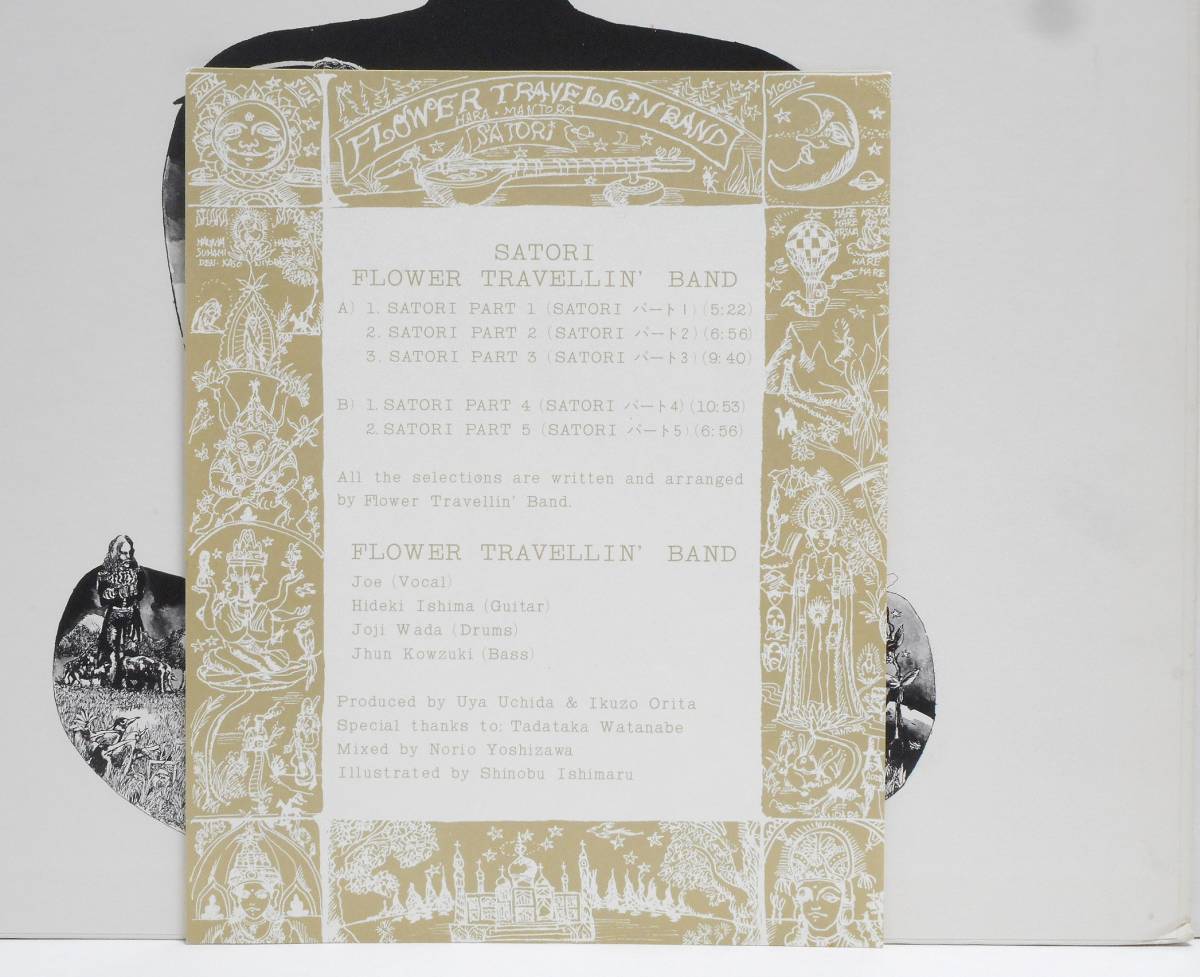 SUN
MOON
FLOWER TRAVELLIN BAND
HARA・MANTORA
SATORI
HARE KRSNA
HARE
KRSNA
HARE
HARE
SATORI
FLOWER TRAVELLIN' BAND
A) 1. SATORI PART 1 (SATORI パート1) (5:22)
2. SATORI PART 2 (SATORI パート2) (6:56)
3. SATORI PART 3 (SATORI パート3) (9:40)
B) 1. SATORI PART 4 (SATORI パート4) (10:53)
2. SATORI PART 5 (SATORI パート5) (6:56)
All the selections are written and arranged
by Flower Travellin' Band.
FLOWER TRAVELLIN' BAND
Joe (Vocal)
Hideki Ishima (Guitar)
Joji Wada (Drums)
Jhun Kowzuki (Bass)
Produced by Uya Uchida & Ikuzo Orita
Special thanks to: Tadataka Watanabe
Mixed by Norio Yoshizawa
Illustrated by Shinobu Ishimaru